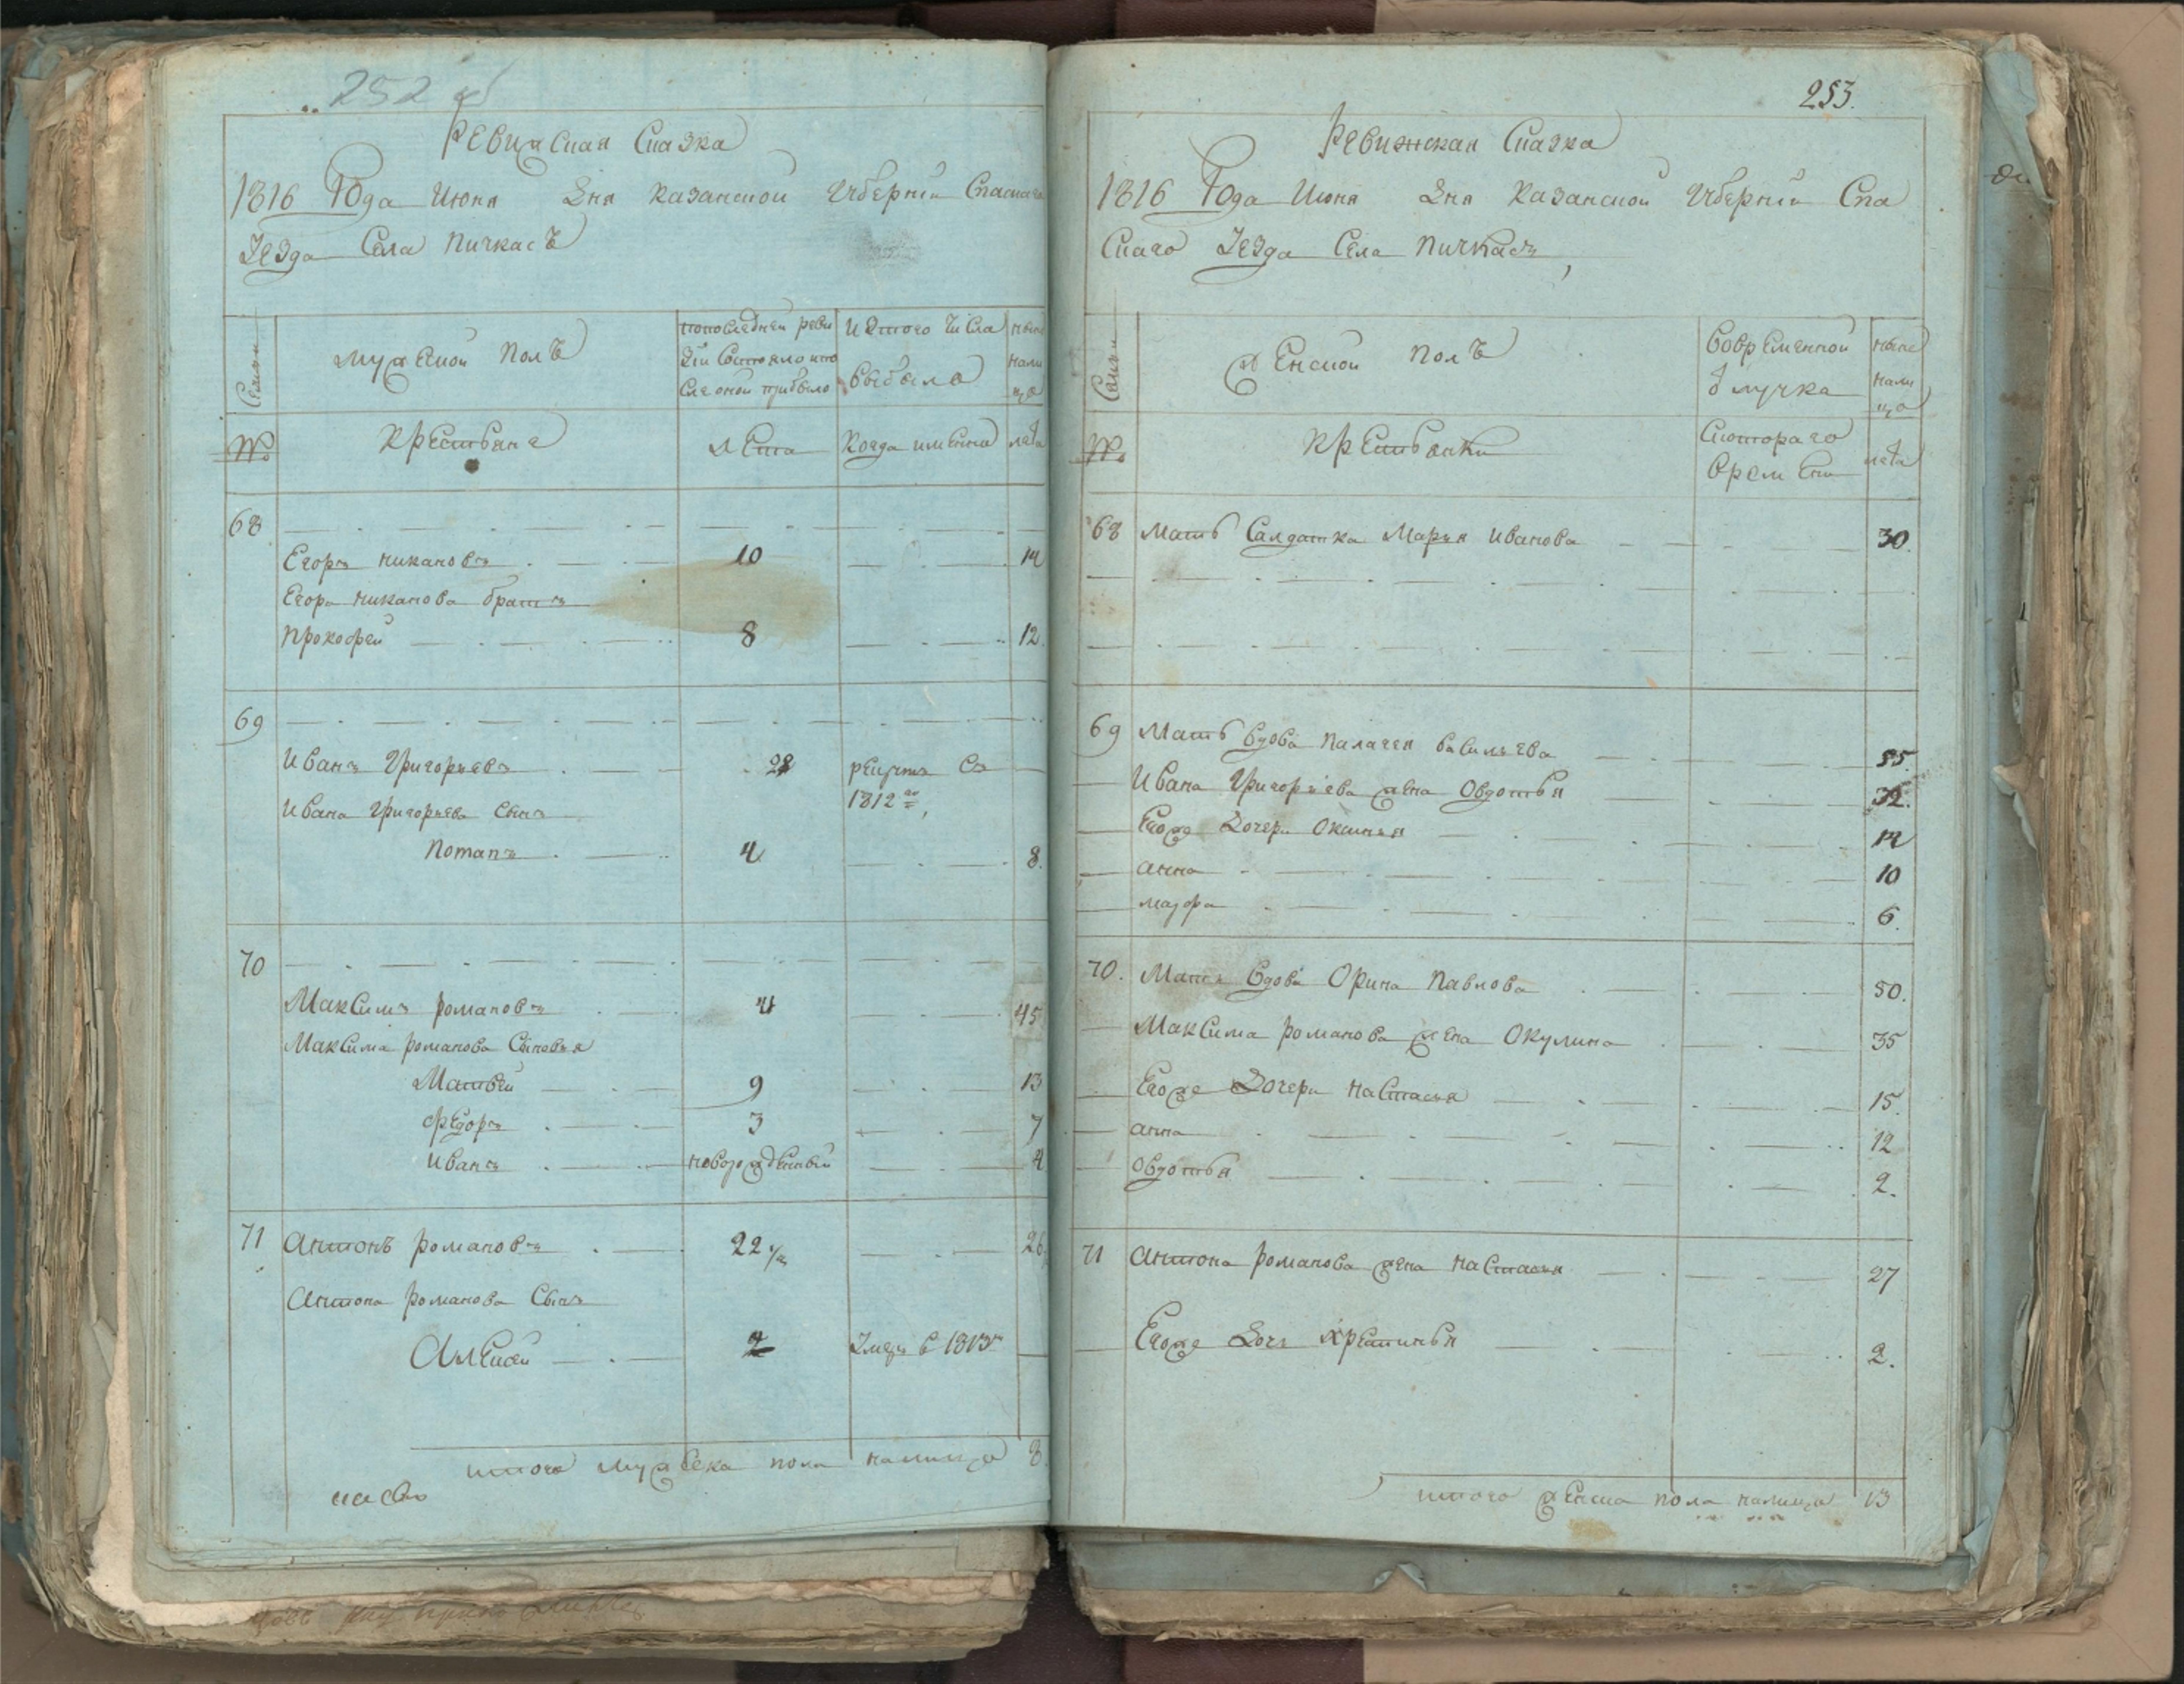 252 об
Ревижская Сказка
1816 Года Июня Дня Казанской Губернии Спаскаго
Уезда Села Пичкасъ
Семьи
мужеской полъ
по последней реви
зии состояло и по
сле оной прибыло
изтого числа
выбыло
ныне
нали
цо
№
крестьяне
лета
когда имянно
лета
68
Егоръ никановъ 10 14
Егора никанова братъ
прокофей 8 12
69
Иванъ Григорьевъ 28 рекрутъ съ
1812го
Ивана Григорьева сынъ
потапъ 4 8.
70
Максимъ романовъ 41 45
Максима романова сыновья
Матвей 9 13
федоръ 3 7
иванъ новорожденный 4
71 Антонъ романовъ 22 26
Антона романова сынъ
Алексей 2 умеръ в 1813м
итого мужеска пола налицо 8
253.
Ревижская Сказка
1816 Года Июня Дня Казанской Губернии Спа
скаго Уезда Села Пичкасъ
Семьи
женской полъ
во временной
отлучке
ныне
нали
цо
№
крестьянки
с котораго
времени
лета
68 мать салдатка Марья иванова 30.
69 Мать вдова палагея васильева 55.
Ивана Григорьева жена Овдотья 32.
Егоже дочери Оксинья 14
анна 10
мавра 6.
70. Мать вдова Орина павлова 50.
Максима романова жена Окулина 35
Егоже дочери настасья 15.
анна 12
овдотья 2.
71 Антона романова жена настасья 27
Егоже дочь хрестинья 2.
итого женска пола налицо 13